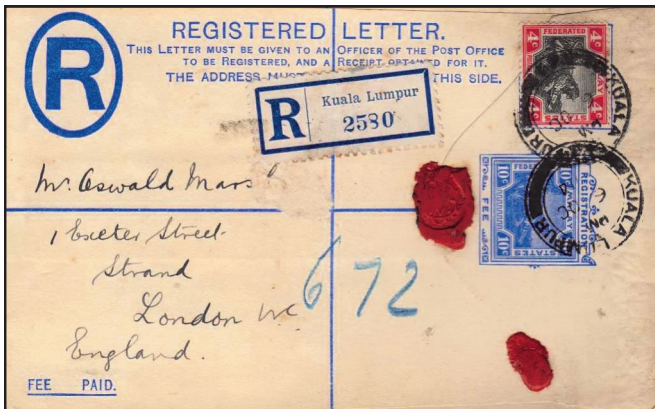 REGISTERED LETTER.
THIS LETTER MUST BE GIVEN TO AN OFFICER OF THE POST OFFICE
TO BE REGISTERED, AND A RECEIPT OBTAINED FOR IT.
THE ADDRESS MUST THIS SIDE.
R
R Kuala Lumpur
2580
4c FEDERATED 4c
4c STATES 4c
KUALA
KUALA
LUMPUR
REGISTRATION
FEE
10c
10c
STATES
10c
Mr. Oswald Marsh
1 Exeter Street
Strand
London WC
England.
672
FEE PAID.